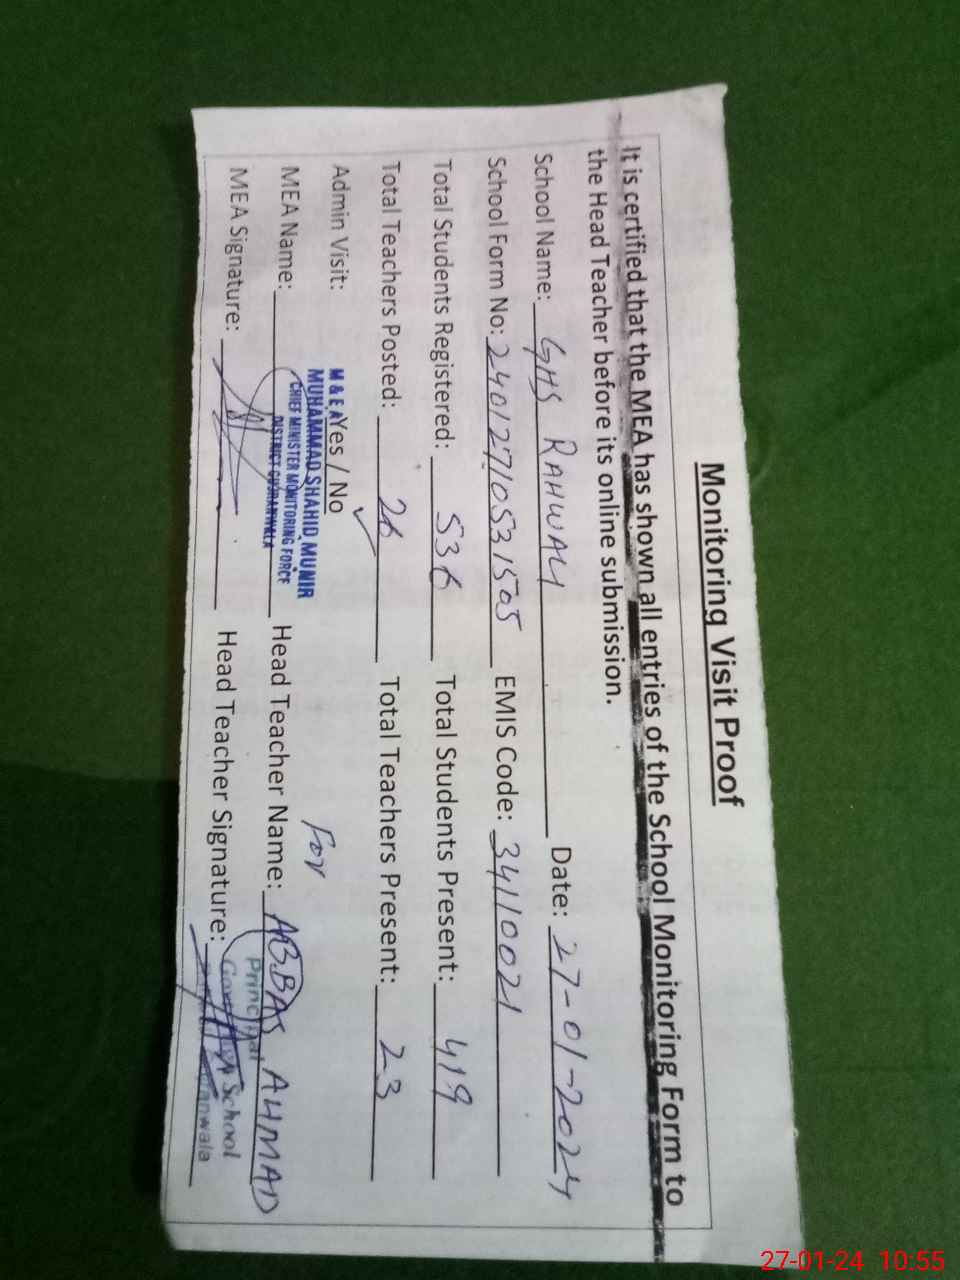 Monitoring Visit Proof
It is certified that the MEA has shown all entries of the School Monitoring Form to
the Head Teacher before its online submission.
School Name: GHS RAHWALI Date: 27-01-2024
School Form No: 24012710531505 EMIS Code: 34110021
Total Students Registered: 536 Total Students Present: 419
Total Teachers Posted: 26 Total Teachers Present: 23
Admin Visit: Yes / No ✓
M & E A
MUHAMMAD SHAHID MUNIR
CHIEF MINISTER MONITORING FORCE
DISTRICT GUJRANWALA
For
MEA Name: Head Teacher Name: ABBAS AHMAD
MEA Signature: Head Teacher Signature:
Principal
Govt. High School
27-01-24 10:55